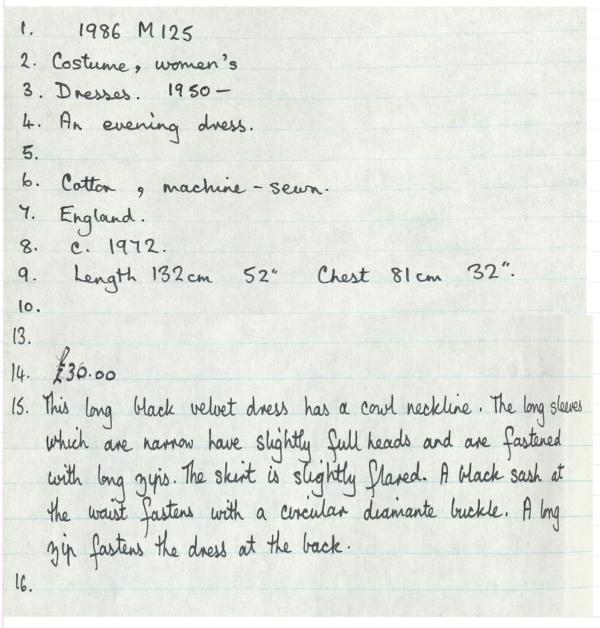 1. 1986 M 125
2. Costume, women's
3. Dresses. 1950 —
4. An evening dress.
5.
6. Cotton, machine-sewn.
7. England.
8. c. 1972.
9. Length 132cm 52" Chest 81cm 32".
10.
13.
14. £30.00
15. This long black velvet dress has a cowl neckline. The long sleeves
which are narrow have slightly full heads and are fastened
with long zips. The skirt is slightly flared. A black sash at
the waist fastens with a circular diamante buckle. A long
zip fastens the dress at the back.
16.